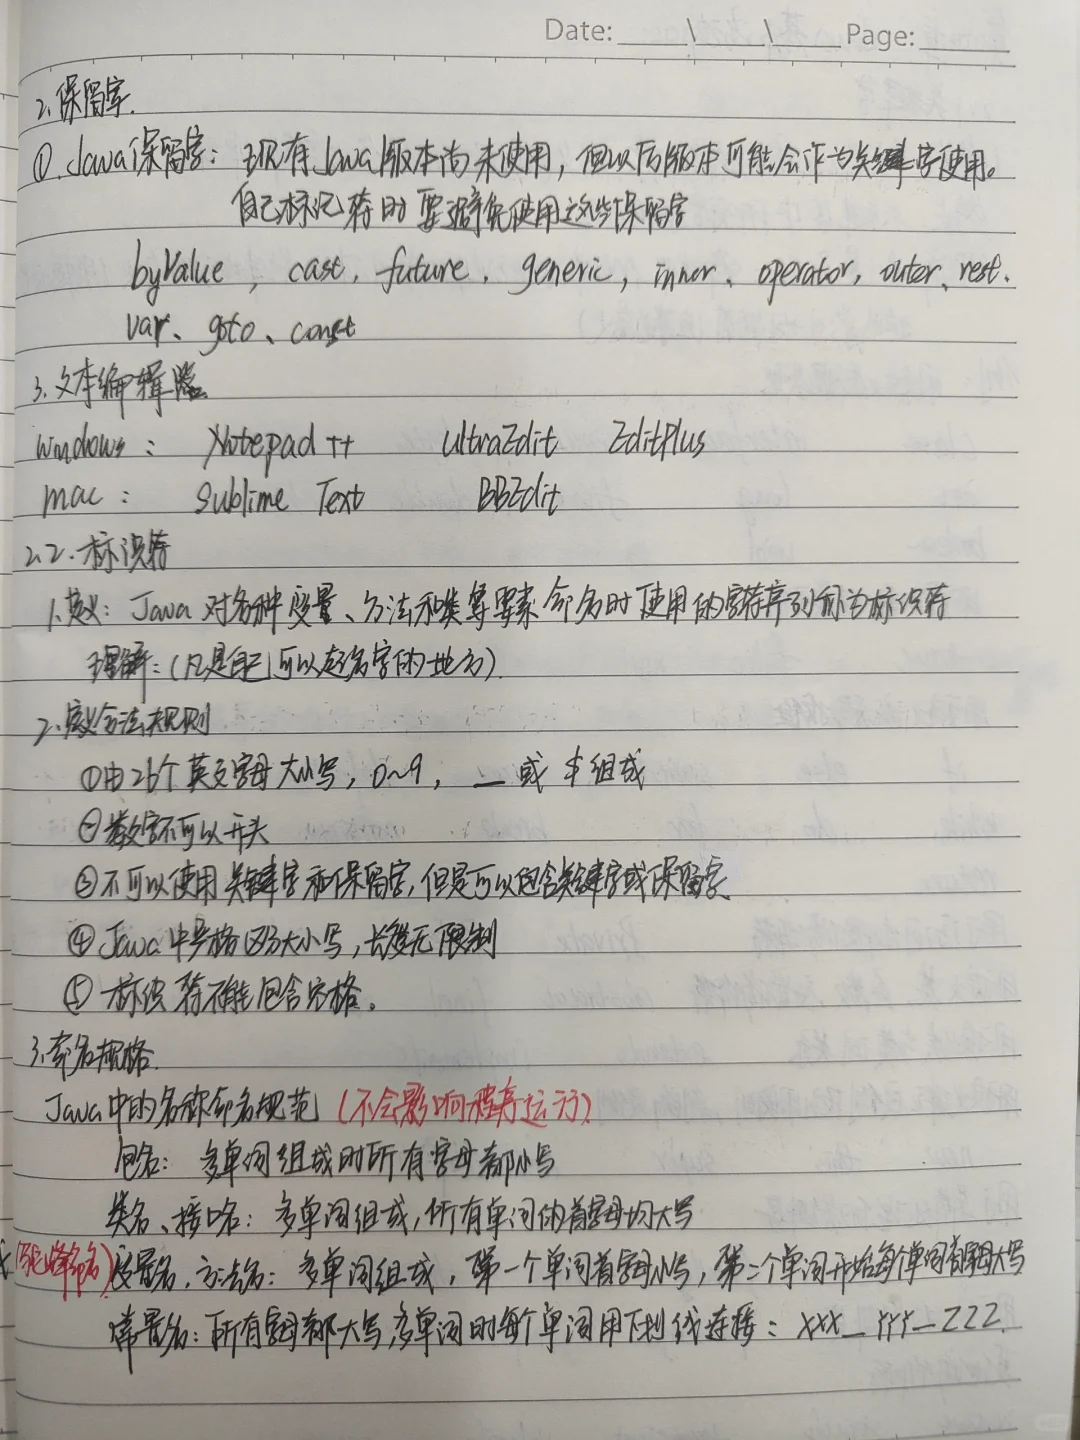 Date: ____\____\____ Page: ____
2.保留字.
①.Java保留字：现有Java版本尚未使用，但以后版本可能会作为关键字使用。
自己标记符时要避免使用这些保留字
byValue，cast，future，generic，inner、operator，outer、rest、
var、goto、const
3.文本编辑器
windows： Notepad++ UltraEdit EditPlus
mac： Sublime Text BBEdit
2.2.标识符
1.定义：Java对各种变量、方法和类等要素命名时使用的字符序列称为标识符
理解：（凡是自己可以起名字的地方）
2.定义合法规则
①由26个英文字母大小写，0~9，_ 或 $ 组成
②数字不可以开头
③不可以使用关键字和保留字，但是可以包含关键字或保留字
④Java中严格区分大小写，长度无限制
⑤标识符不能包含空格。
3.命名规格.
Java中的名称命名规范（不会影响程序运行）
包名：多单词组成时所有字母都小写
类名、接口名：多单词组成，所有单词的首字母均大写
（驼峰命名）变量名，方法名：多单词组成，第一个单词首字母小写，第二个单词开始每个单词首字母大写
常量名：所有字母都大写，多单词时每个单词用下划线连接：XXX_YYY_ZZZ